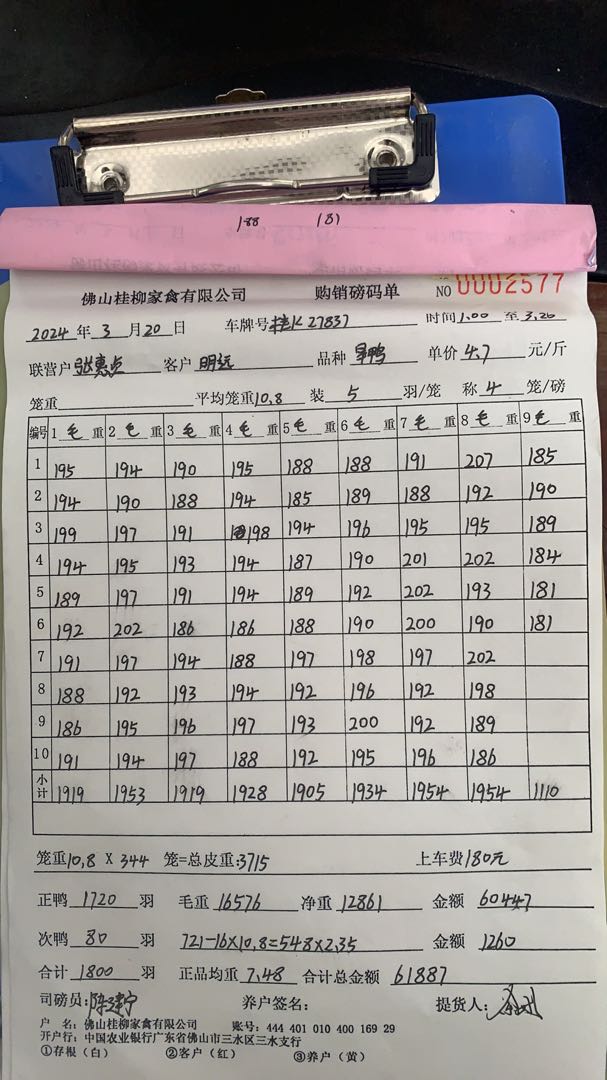 188 181
佛山桂柳家禽有限公司 购销磅码单 NO 0002577
2024年3月20日 车牌号桂K27837 时间1.00至3.20
联营户张惠贞 客户明远 品种 单价4.7元/斤
笼重 平均笼重10.8 装5羽/笼 称4笼/磅
编号 1毛重 2毛重 3毛重 4毛重 5毛重 6毛重 7毛重 8毛重 9毛重
1 195 194 190 195 188 188 191 207 185
2 194 190 188 194 185 189 188 192 190
3 199 197 191 198 194 196 195 195 189
4 194 195 193 194 187 190 201 202 184
5 189 197 191 194 189 192 202 193 181
6 192 202 186 186 188 190 200 190 181
7 191 197 194 188 197 198 197 202
8 188 192 193 194 192 196 192 198
9 186 195 196 197 193 200 192 189
10 191 194 197 188 192 195 196 186
小计 1919 1953 1919 1928 1905 1934 1954 1954 1110
笼重10.8 X 344 笼=总皮重:3715 上车费180元
正鸭1720羽 毛重16576 净重12861 金额60447
次鸭80羽 721-16×10.8=548×2.35 金额1260
合计1800羽 正品均重7.48 合计总金额61887
司磅员: 养户签名: 提货人:
户 名:佛山桂柳家禽有限公司 账号:444 401 010 400 169 29
开户行:中国农业银行广东省佛山市三水区三水支行
①存根(白) ②客户(红) ③养户(黄)